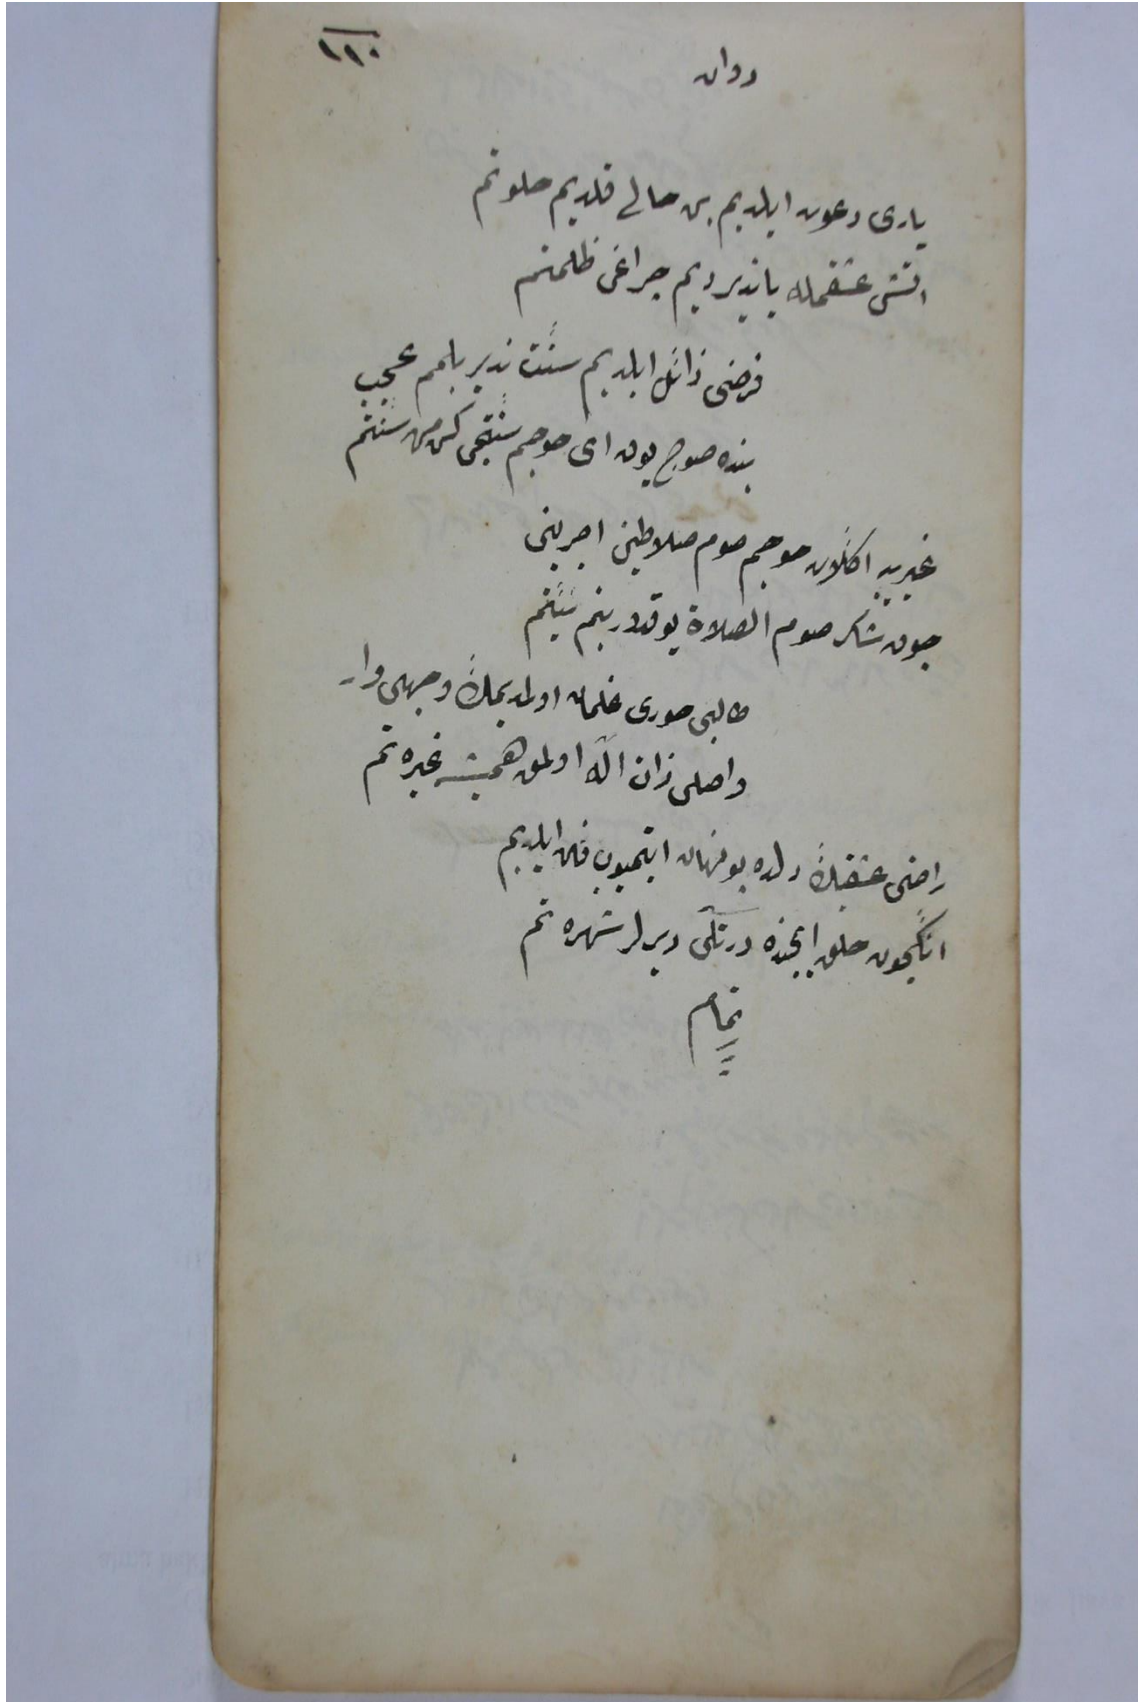 ١١٠
دوان
یاری دعوت ایلدیم بن خالی قلدیم خلوتم
اتش عشقمله یاندیردیم چراغی ظلمتم
فرضی زائل ایلدیم سنت ندیر بلمم عجب
بنده صوچ یوق ای خوجم سنتجی کس سنتم
غیریه اکلات خوجم صوم صلاطین اجرینی
چون شکر صوم الصلاة یوقدر بنم نیتم
طالبی حوری غلمان اولمدیغمك وجهی وار
واصلی ذات الله اولمق همیشه غیرتم
راضی عشقك دلده پونهان ایتمیوب فاش ایلدیم
انکچون خلق ایچنده درتلی دیرلر شهرتم
تمام